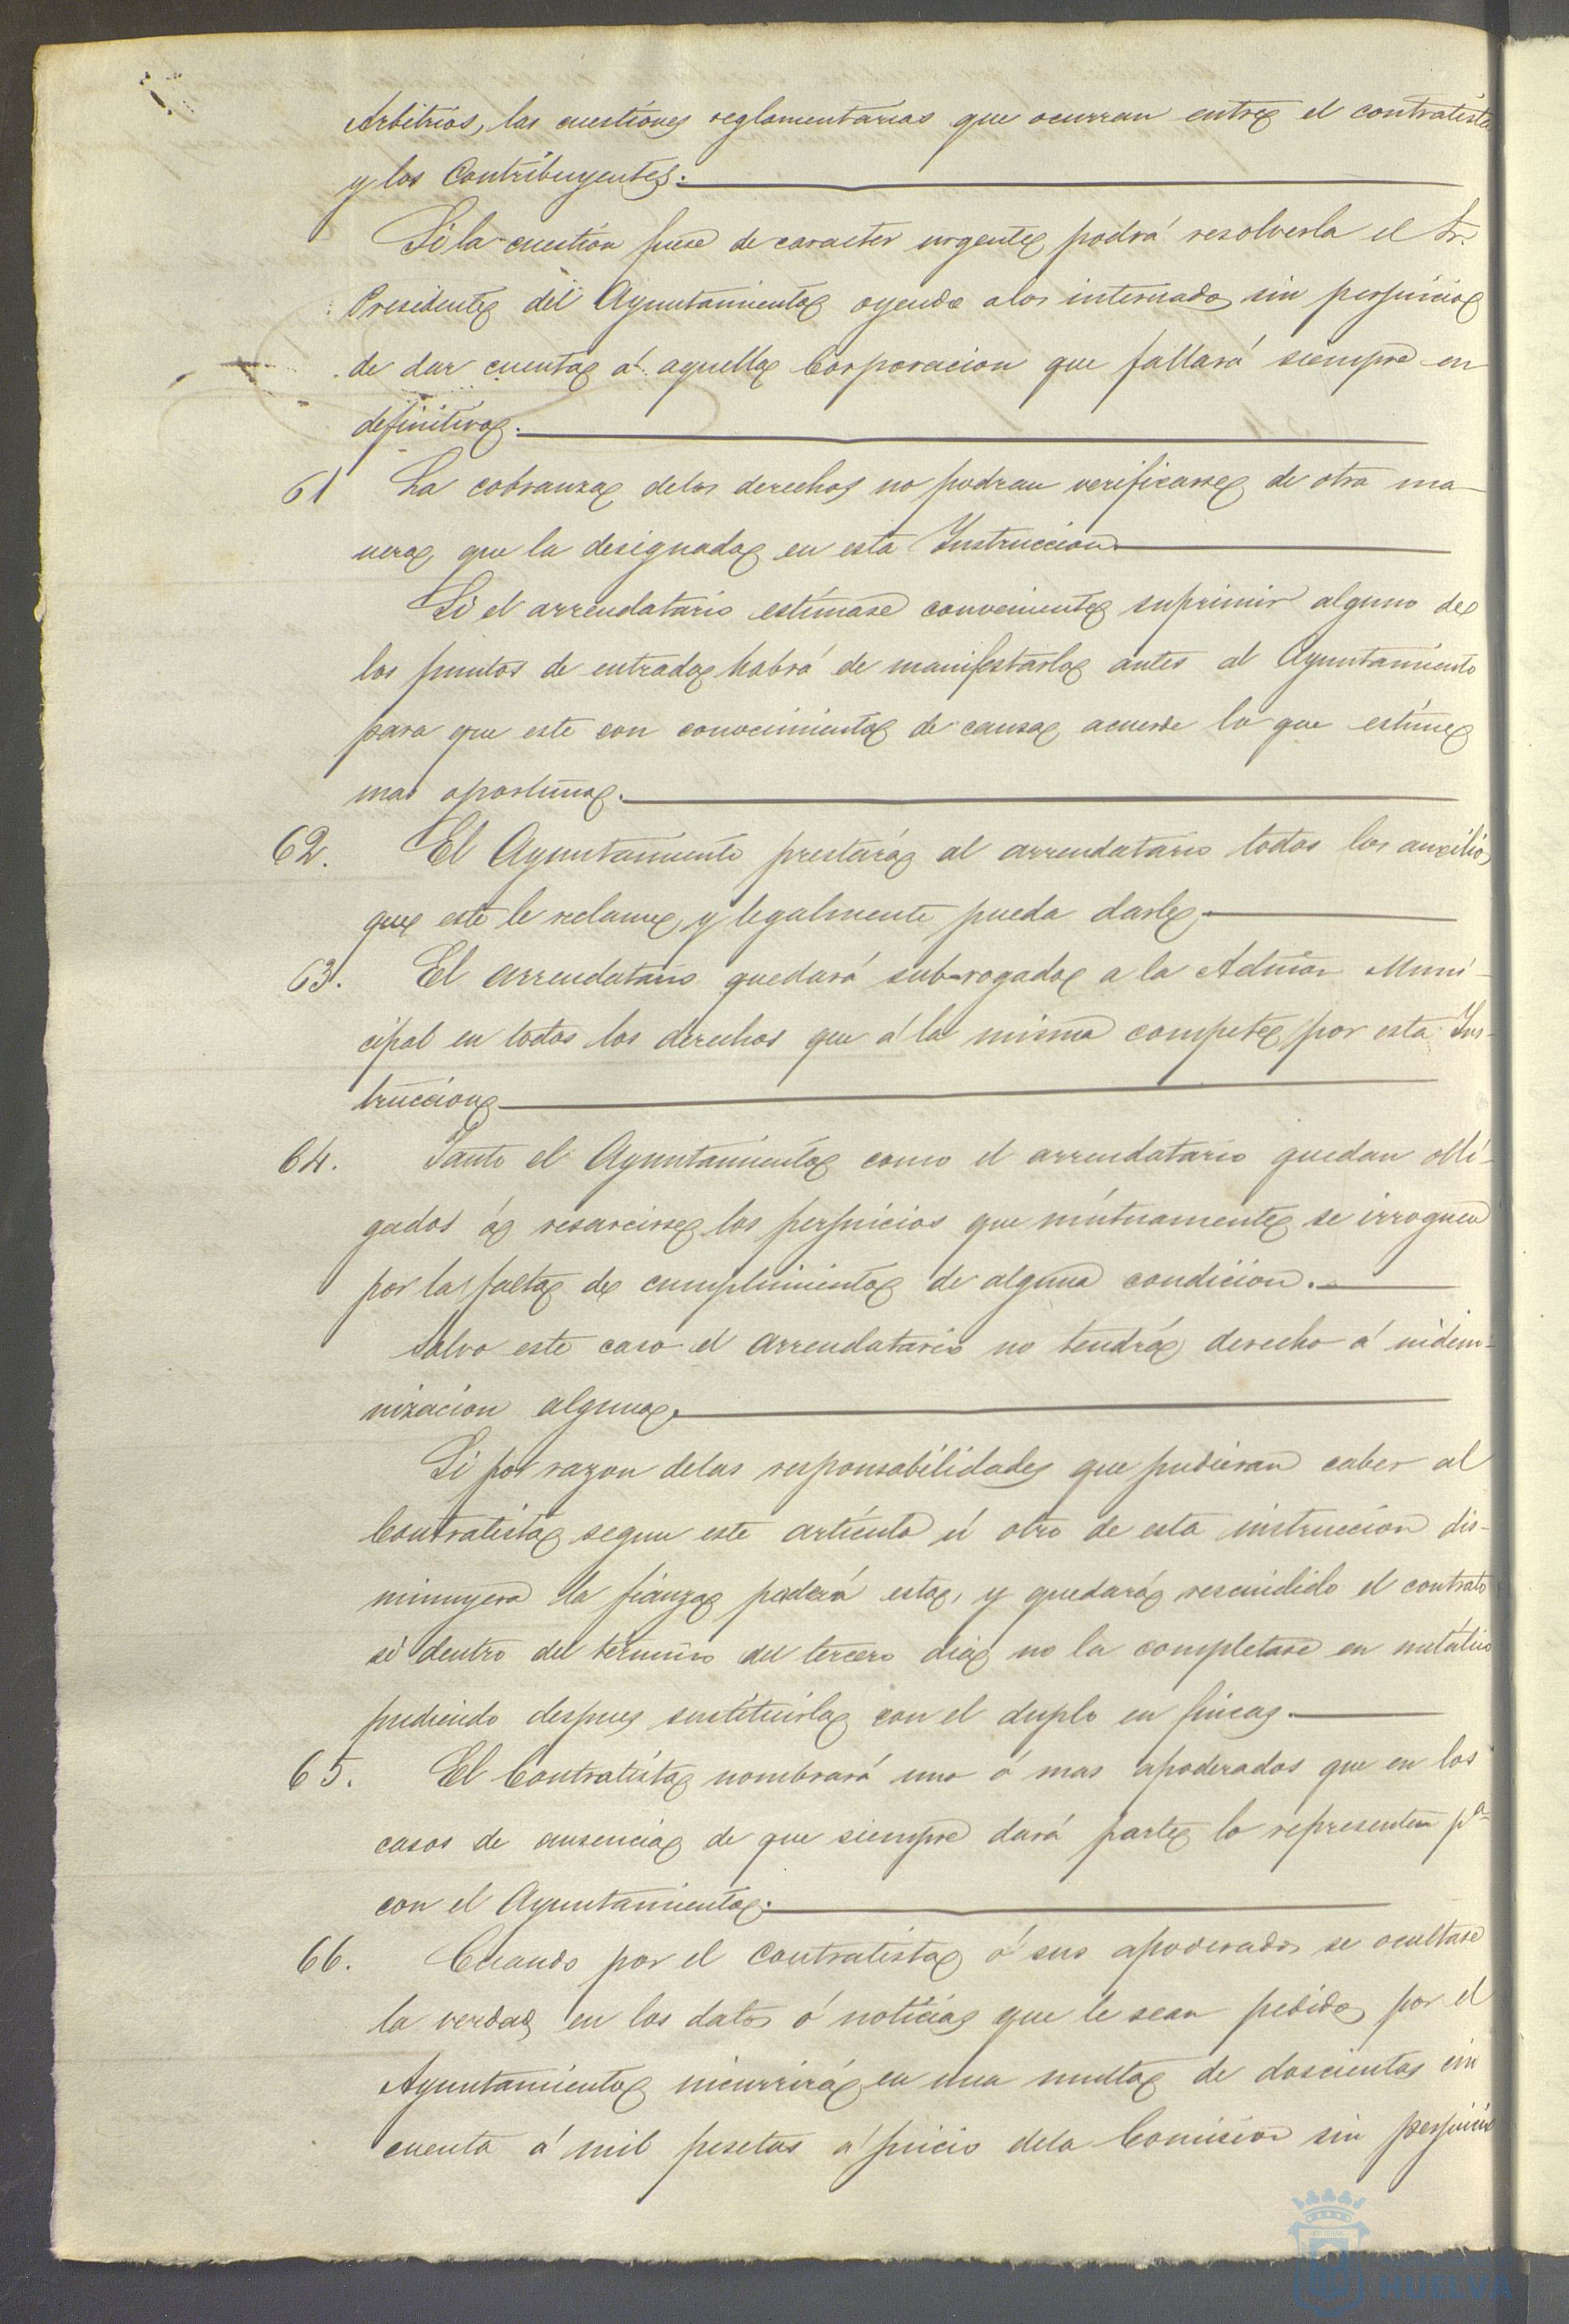 Arbitrios, las cuestiones reglamentarias que ocurran entre el contratista
y los Contribuyentes.
Si la cuestion fuese de caracter urgente podrá resolverla el Sr.
Presidente del Ayuntamiento oyendo a los interesados sin perjuicio
de dar cuenta á aquella Corporacion que fallará siempre en
definitiva.
61 La cobranza delos derechos no podran verificarse de otra ma-
nera, que la designada en esta Instruccion
Si el arrendatario estimase conveniente suprimir alguno de
los puntos de entrada habrá de manifestarlo antes al Ayuntamiento
para que este con conocimiento de causa, acuerde lo que estime
mas oportuno.
62. El Ayuntamiento prestará al arrendatario todos los auxilios
que este le reclame, y legalmente pueda darle.
63. El arrendatario quedará sub-rogado a la Admon Muni-
cipal en todos los derechos que á la misma compete por esta Ins-
truccion
64. Tanto el Ayuntamiento como el arrendatario quedan obli-
gados á resarcirse los perjuicios que mútuamente se irroguen
por la falta de cumplimiento de alguna condicion.
Salvo este caso el arrendatario no tendrá derecho á indem-
nizacion alguna.
Si por razon delas responsabilidades que pudieran caber al
Contratista segun este artículo ú otro de esta instruccion dis-
minuyera la fianza perderá esta, y quedará rescindido el contrato
si dentro del término del tercero dia no la completase en metálico
pudiendo despues sustituirla con el duplo en fincas.
65. El Contratista nombrará uno ó mas apoderados que en los
casos de ausencia de que siempre dará parte lo representen pª
con el Ayuntamiento.
66. Cuando por el Contratista ó sus apoderados se ocultase
la verdad en los datos ó noticias que le sean pedidos por el
Ayuntamiento incurrirá en una multa de doscientas cin
cuenta á mil pesetas á juicio dela Comision sin perjuicio
HUELVA